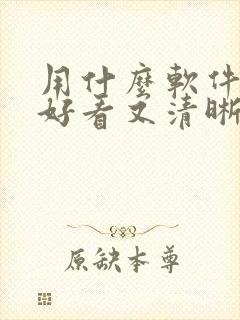 用什麼軟件
好看又清晰
原缺本尊